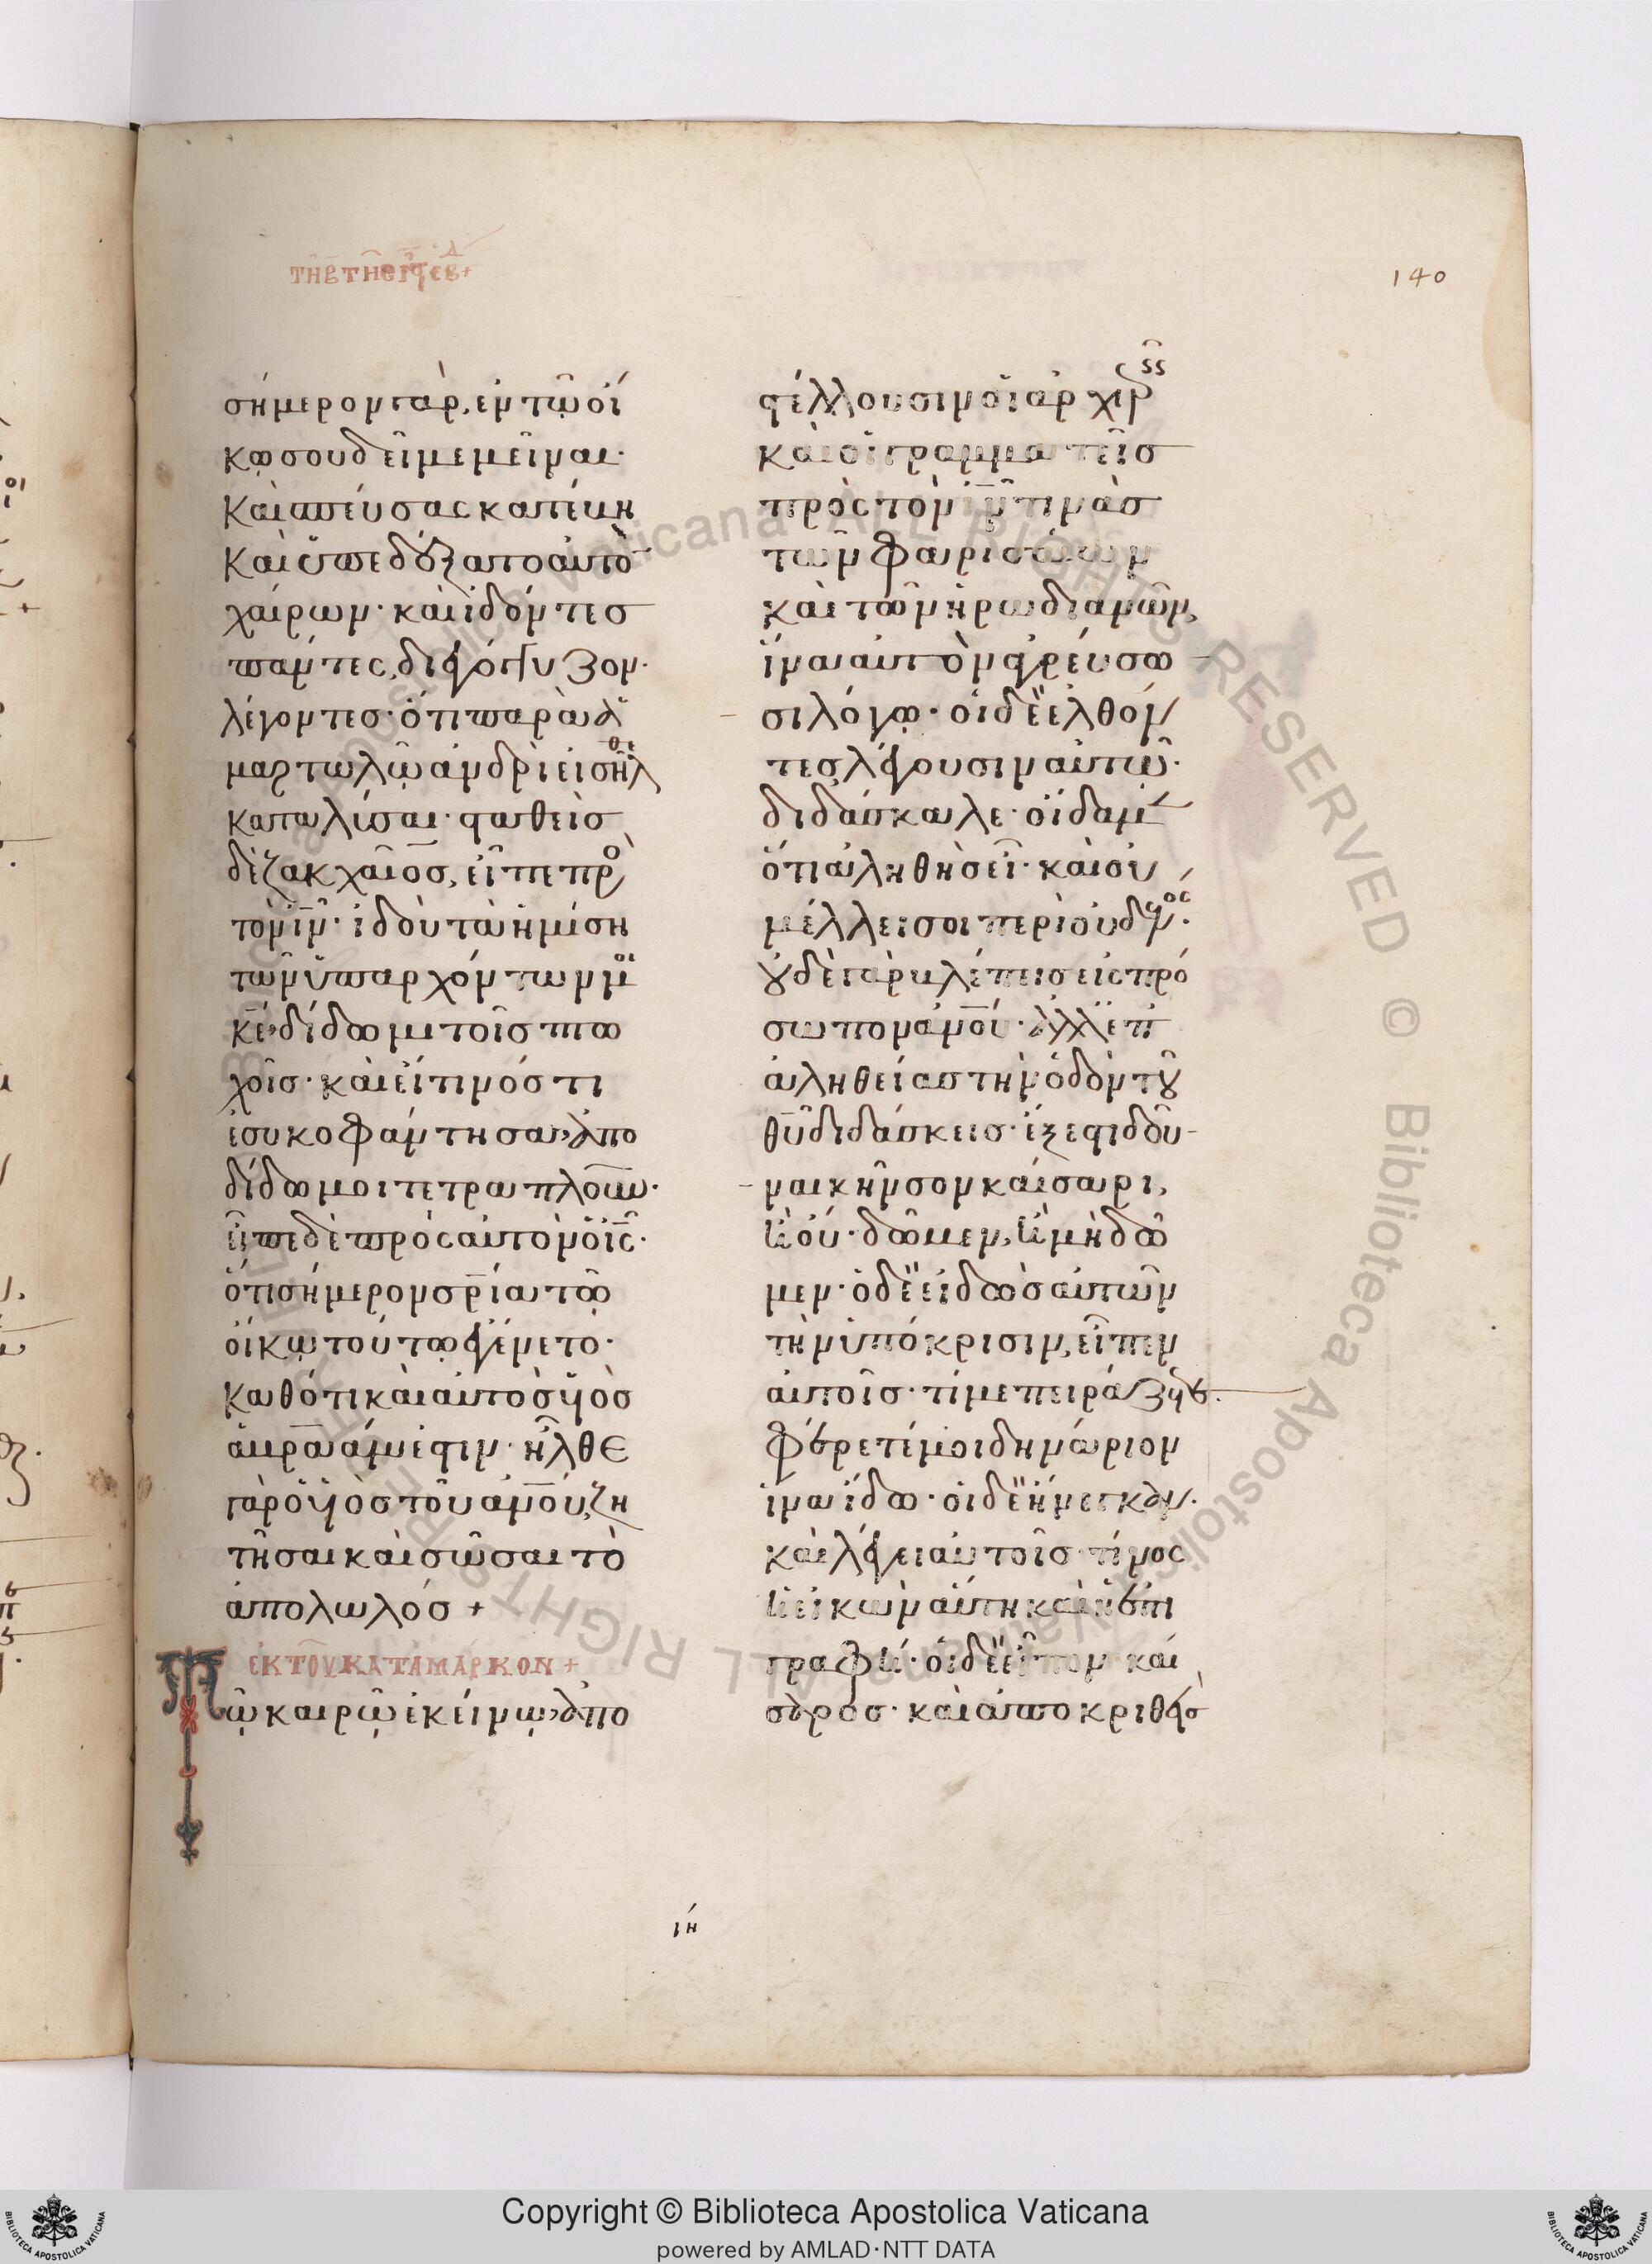 140
σήμερον γὰρ, ἐν τῶ οἴ
κω σου δεῖ με μεῖναι·
Καὶ σπεύσας κατέβη
Καὶ ὑπεδέξατο αὐτὸ
χαίρων· καὶ ἰδόντεσ
πάντες, διεγόγγυζον·
λέγοντεσ· ὅτι παρὰ ἁ
μαρτωλῶ ἀνδρὶ εἰσῆλθε
καταλῦσαι· σταθεὶσ
δὲ ζακχαῖοσ, εἶπε πρὸ
τὸν ιν· ἰδοὺ τὰ ἡμίση
τῶν ὑπαρχόντων μου
κε, δίδωμι τοῖσ πτω
χοῖσ· καὶ εἴ τινόσ τι
ἐσυκοφάντησα, ἀπο
δίδωμι τετραπλοῦν·
εἶπε δὲ πρὸς αὐτὸν ὁ ις·
ὅτι σήμερον σρία τῶ
οἴκω τούτω ἐγένετο·
Καθότι καὶ αὐτὸσ υἱὸσ
ἀβραάμ ἐστιν· ἦλθε
γὰρ ὁ υἱὸσ τοῦ ανου, ζη
τῆσαι καὶ σῶσαι τὸ
ἀπολωλόσ +
ἐκ τοῦ κατὰ μάρκον +
Τῶ καιρῶ ἐκείνω, ἀπο
στέλλουσιν οἱ ἀρχιερεῖς
καὶ οἱ γραμματεῖσ
πρὸς τὸν ιν τινὰσ
τῶν φαρισαίων
καὶ τῶν ἡρωδιανῶν,
ἵνα αὐτὸν ἀγρεύσω
σι λόγω· οἱ δὲ ἐλθόν
τεσ λέγουσιν αὐτῶ·
διδάσκαλε· οἴδαμεν
ὅτι ἀληθὴσ εἶ· καὶ οὐ
μέλλει σοι περὶ οὐδενός·
οὐδὲ γὰρ βλέπεισ εἰς πρό
σωπον ανου· ἀλλ' ἐπ'
ἀληθείασ τὴν ὁδὸν τοῦ
θυ διδάσκεισ· ἔξεστι δοῦ
ναι κῆνσον καίσαρι,
ἢ οὔ· δῶμεν, ἢ μὴ δῶ
μεν· ὁ δὲ εἰδὼσ αὐτῶν
τὴν ὑπόκρισιν, εἶπεν
αὐτοῖσ· τί με πειράζετε·
φέρετέ μοι δηνάριον
ἵνα ἴδω· οἱ δὲ ἤνεγκαν·
καὶ λέγει αὐτοῖσ· τίνος
ἡ εἰκὼν αὕτη καὶ ἡ ἐπι
γραφή· οἱ δὲ εἶπον· καί
σαροσ· καὶ ἀποκριθεὶσ
ιη